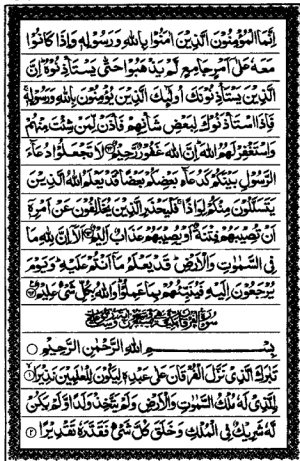 اِنَّمَا الْمُؤْمِنُوْنَ الَّذِيْنَ اٰمَنُوْا بِاللّٰهِ وَرَسُوْلِهٖ وَاِذَا كَانُوْا
مَعَهٗ عَلٰٓى اَمْرٍ جَامِعٍ لَّمْ يَذْهَبُوْا حَتّٰى يَسْتَاْذِنُوْهُ ؕ اِنَّ
الَّذِيْنَ يَسْتَاْذِنُوْنَكَ اُولٰٓئِكَ الَّذِيْنَ يُؤْمِنُوْنَ بِاللّٰهِ وَرَسُوْلِهٖ ۚ
فَاِذَا اسْتَاْذَنُوْكَ لِبَعْضِ شَاْنِهِمْ فَاْذَنْ لِّمَنْ شِئْتَ مِنْهُمْ
وَاسْتَغْفِرْ لَهُمُ اللّٰهَ ؕ اِنَّ اللّٰهَ غَفُوْرٌ رَّحِيْمٌ لَا تَجْعَلُوْا دُعَآءَ
الرَّسُوْلِ بَيْنَكُمْ كَدُعَآءِ بَعْضِكُمْ بَعْضًا ؕ قَدْ يَعْلَمُ اللّٰهُ الَّذِيْنَ
يَتَسَلَّلُوْنَ مِنْكُمْ لِوَاذًا ۚ فَلْيَحْذَرِ الَّذِيْنَ يُخَالِفُوْنَ عَنْ اَمْرِهٖٓ
اَنْ تُصِيْبَهُمْ فِتْنَةٌ اَوْ يُصِيْبَهُمْ عَذَابٌ اَلِيْمٌ اَلَآ اِنَّ لِلّٰهِ مَا
فِى السَّمٰوٰتِ وَالْاَرْضِ ؕ قَدْ يَعْلَمُ مَآ اَنْتُمْ عَلَيْهِ ؕ وَيَوْمَ
يُرْجَعُوْنَ اِلَيْهِ فَيُنَبِّئُهُمْ بِمَا عَمِلُوْا ؕ وَاللّٰهُ بِكُلِّ شَىْءٍ عَلِيْمٌ
بِسْمِ اللّٰهِ الرَّحْمٰنِ الرَّحِيْمِ
تَبٰرَكَ الَّذِىْ نَزَّلَ الْفُرْقَانَ عَلٰى عَبْدِهٖ لِيَكُوْنَ لِلْعٰلَمِيْنَ نَذِيْرَا ۱
الَّذِىْ لَهٗ مُلْكُ السَّمٰوٰتِ وَالْاَرْضِ وَلَمْ يَتَّخِذْ وَلَدًا وَّلَمْ يَكُنْ
لَّهٗ شَرِيْكٌ فِى الْمُلْكِ وَخَلَقَ كُلَّ شَىْءٍ فَقَدَّرَهٗ تَقْدِيْرًا ۲